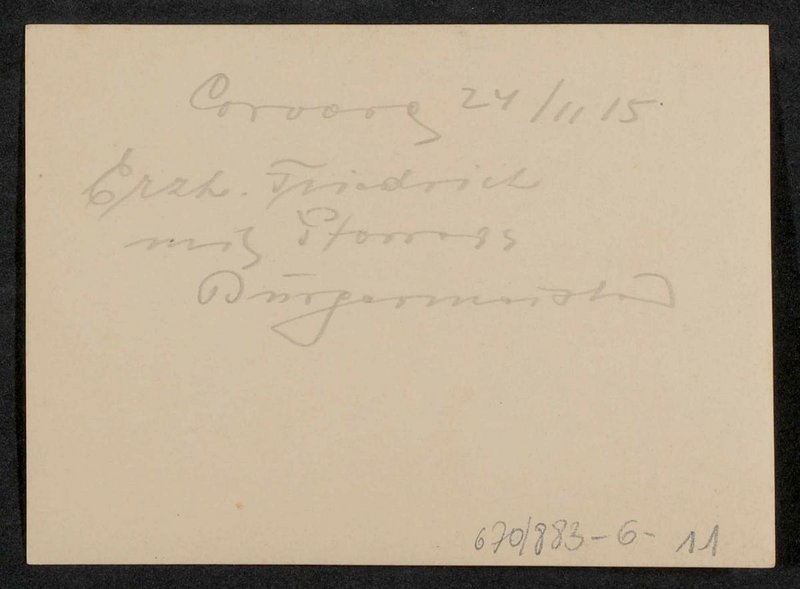 24/11 15
Erzh. Friedrich
mit
Bürgermeister
670/883-6-11